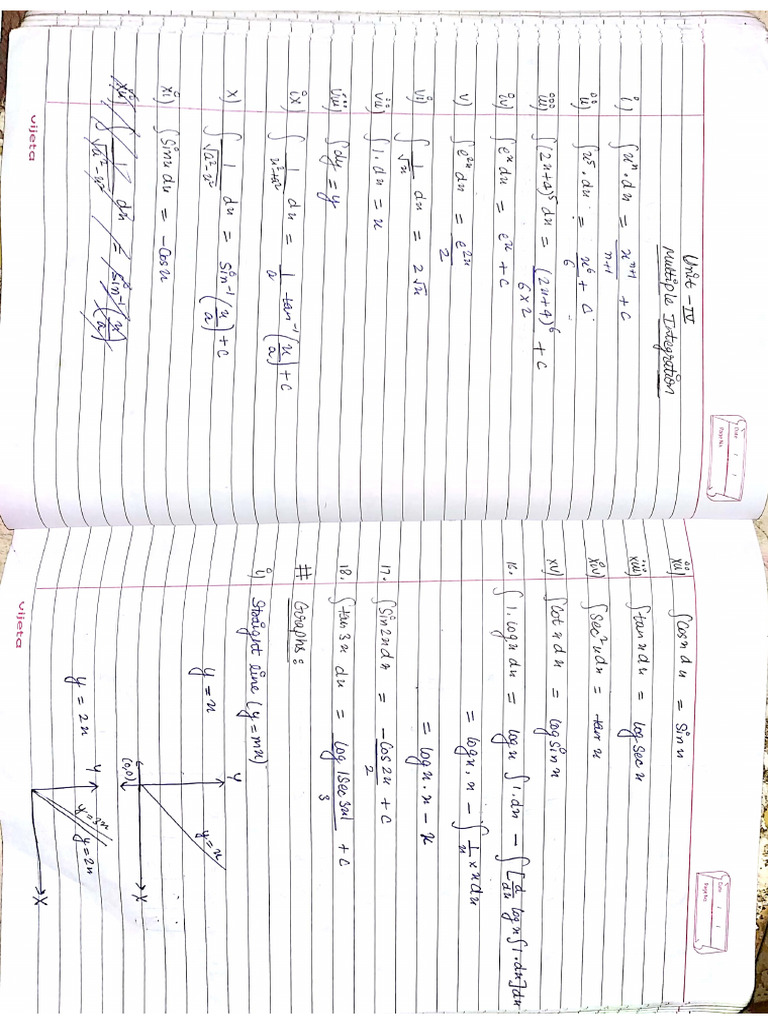 Date / /
Page No.
Unit - IV
Multiple Integration
i) ∫x^n . dx = x^(n+1)/(n+1) + c
ii) ∫x^5 . dx = x^6/6 + c
iii) ∫(2x+4)^5 dx = (2x+4)^6/(6×2) + c
iv) ∫e^x dx = e^x + c
v) ∫e^(2x) dx = e^(2x)/2
vi) ∫ 1/√x dx = 2√x
vii) ∫ 1. dx = x
viii) ∫dy = y
ix) ∫ 1/(x²+a²) dx = 1/a tan^-1 (x/a) + c
x) ∫ 1/√(a²-x²) dx = sin^-1 (x/a) + c
xi) ∫sinx dx = -Cosx
xii) ∫ 1/√(a²-x²) dx = sin^-1 (x/a)
vijeta
Date / /
Page No.
xii) ∫cosx dx = sin x
xiii) ∫tanx dx = log secx
xiv) ∫sec²x dx = tan x
xv) ∫cot x dx = log sin x
16. ∫ 1. logx dx = logx ∫ 1.dx - ∫[d/dx logx ∫ 1.dx]dx
= logx. x - ∫ 1/x × x dx
= logx. x - x
17. ∫ Sin2x dx = -cos2x/2 + c
18. ∫tan3x dx = log|sec3x|/3 + c
# Graphs:
i) Straight line (y=mx)
y = x
Y
y=x
(0,0)
X
y = 2x
Y
y=3x
y=2x
X
vijeta